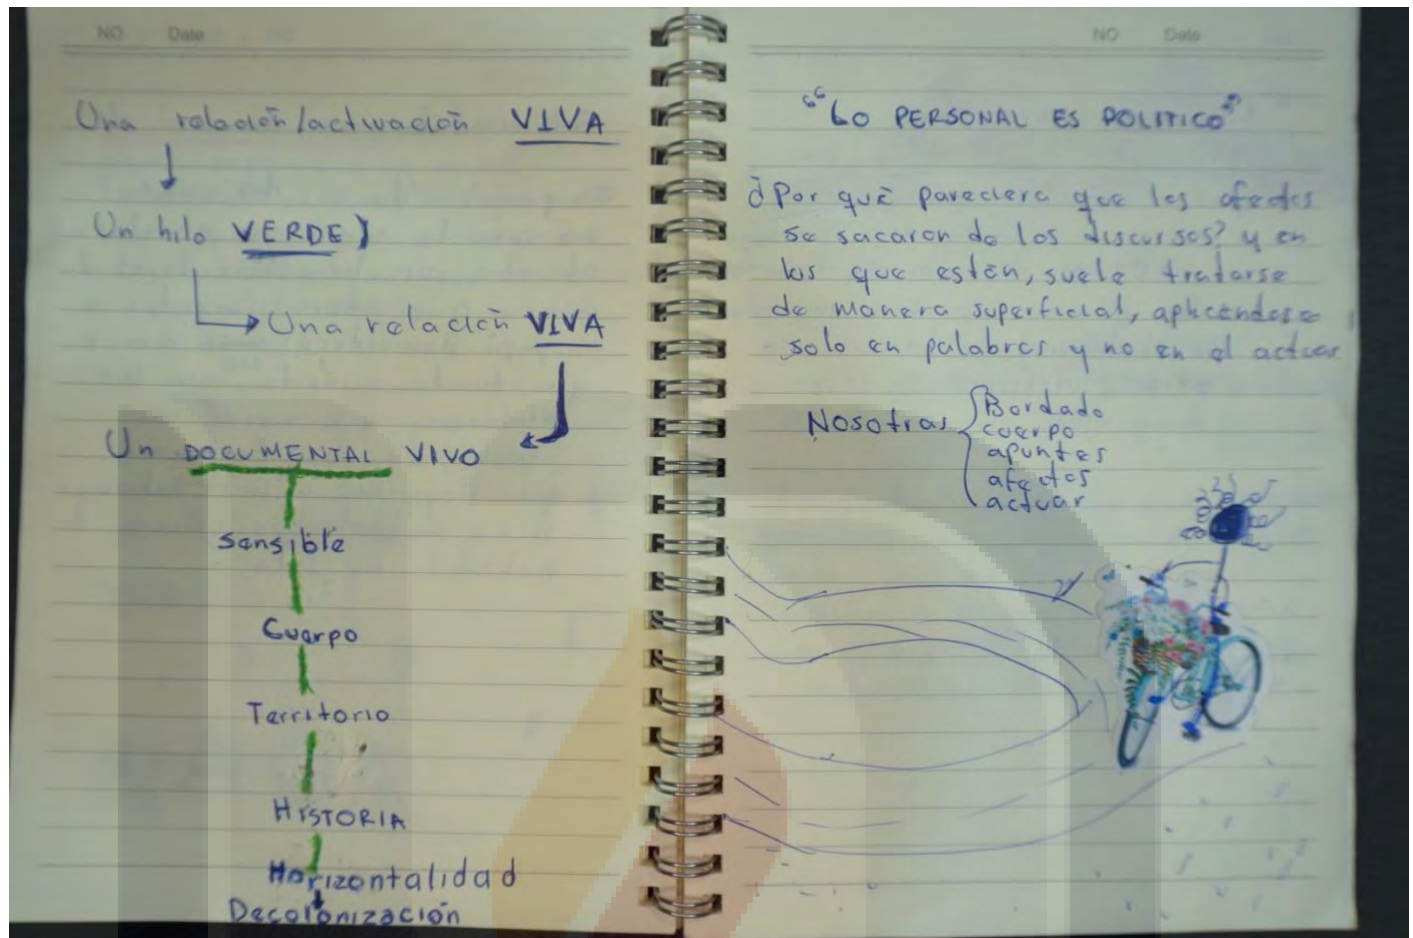 NO Date
Una relación/activación VIVA
Un hilo VERDE)
Una relación VIVA
Un DOCUMENTAL VIVO
Sensible
Cuerpo
Territorio
HISTORIA
Horizontalidad
Decolonización
NO Date
"LO PERSONAL ES POLITICO"
¿Por què pareciera que los afectos
se sacaron de los discursos? y en
los que estén, suele tratarse
de manera superficial, aplicandose
solo en palabras y no en el actuar
Nosotras
Bordado
cuerpo
apuntes
afectos
actuar